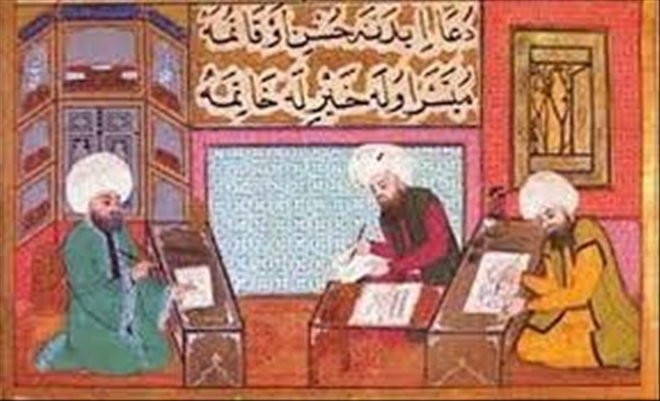 دُعَا اِيدَنَه حُسْنِ اَوقَاتمَهُ
مُبَشَّر اوُلَه خَيْرِلَه خَاتِمَهُ